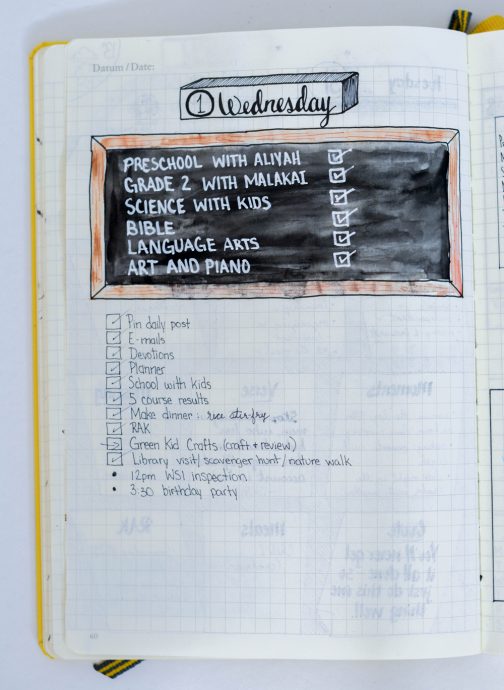 Datum / Date:
1 Wednesday
PRESCHOOL WITH ALIYAH
GRADE 2 WITH MALAKAI
SCIENCE WITH KIDS
BIBLE
LANGUAGE ARTS
ART AND PIANO
Pin daily post
E-mails
Devotions
Planner
School with kids
5 course results
Make dinner: rice stir-fry
RAK
Green Kid Crafts (craft + review)
Library visit/scavenger hunt/nature walk
• 12pm WSI inspection
• 3:30 birthday party
60